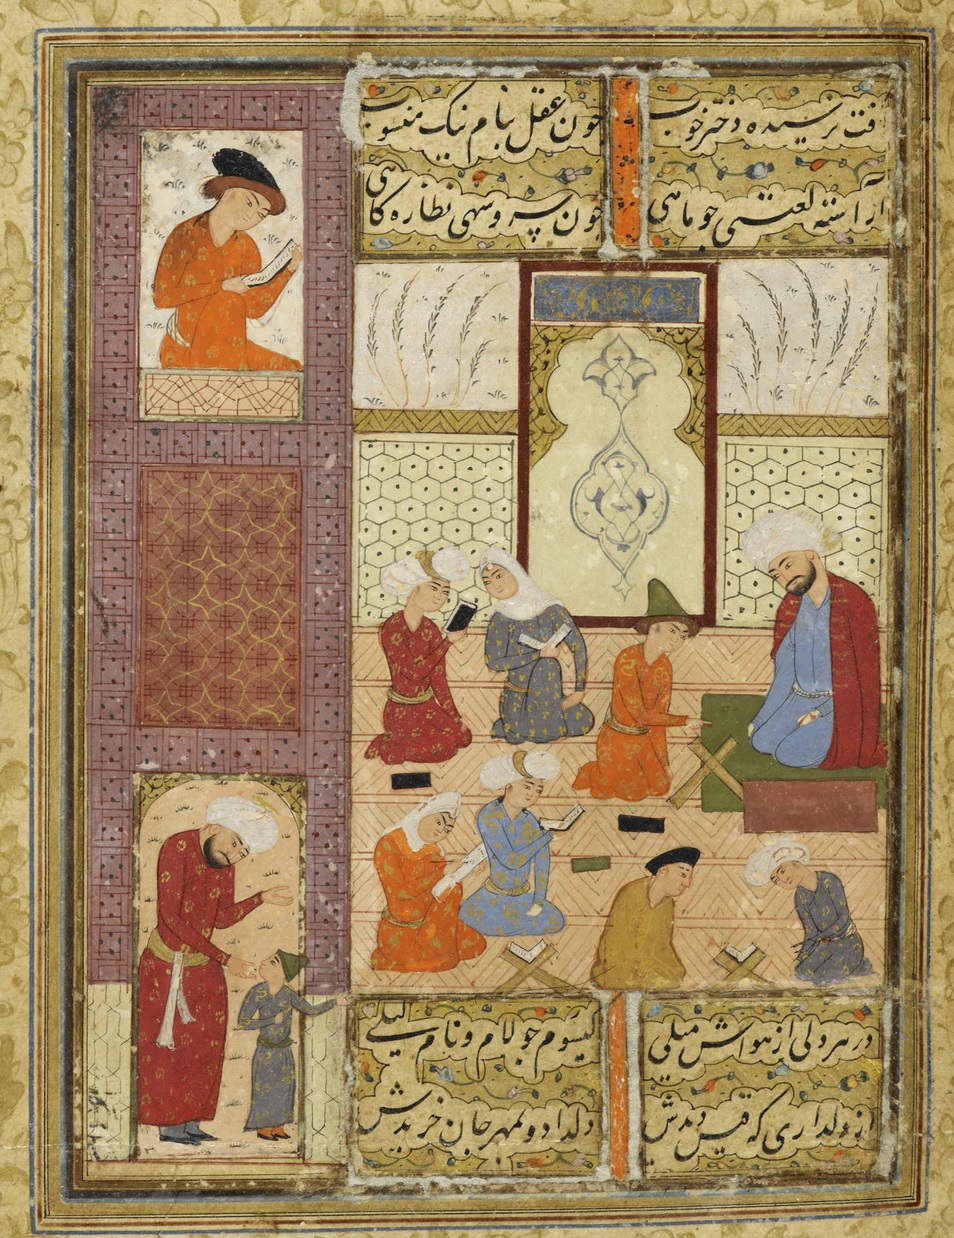 آفت نرسیده دختر خوب چون عقل بنام نیک منسوب
آراسته لعبتی چو ماهی چون سرو سهی نظاره گاهی
در هر دلی از هواش میلی گیسوش چو لام و نام لیلی
از دلداری که قیس دیدش دلداد و بمهر جان خریدش